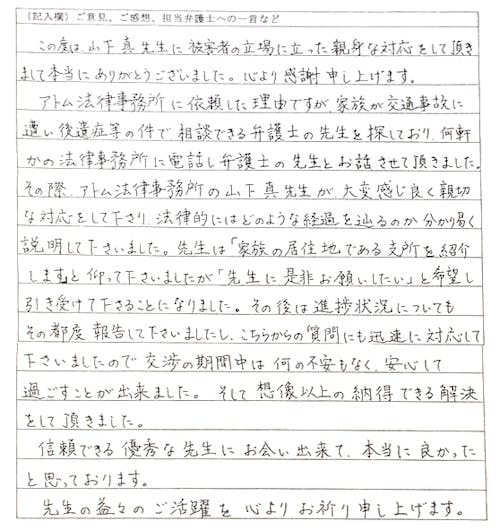 (記入欄)ご意見、ご感想、担当弁護士への一言など
この度は、山下真先生に被害者の立場に立った親身な対応をして頂き
まして本当にありがとうございました。心より感謝申し上げます。
アトム法律事務所に依頼した理由ですが、家族が交通事故に
遭い後遺症等の件で相談できる弁護士の先生を探しており、何軒
かの法律事務所に電話し弁護士の先生とお話させて頂きました。
その際、アトム法律事務所の山下真先生が大変感じ良く親切
な対応をして下さり、法律的にはどのような経過を辿るのか分かり易く
説明して下さいました。先生は「家族の居住地である支所を紹介
します」と仰って下さいましたが「先生に是非お願いしたい」と希望し
引き受けて下さることになりました。その後は進捗状況についても
その都度報告して下さいましたし、こちらからの質問にも迅速に対応して
下さいましたので交渉の期間中は何の不安もなく、安心して
過ごすことが出来ました。そして想像以上の納得できる解決
をして頂きました。
信頼できる優秀な先生にお会い出来て、本当に良かった
と思っております。
先生の益々のご活躍を心よりお祈り申し上げます。